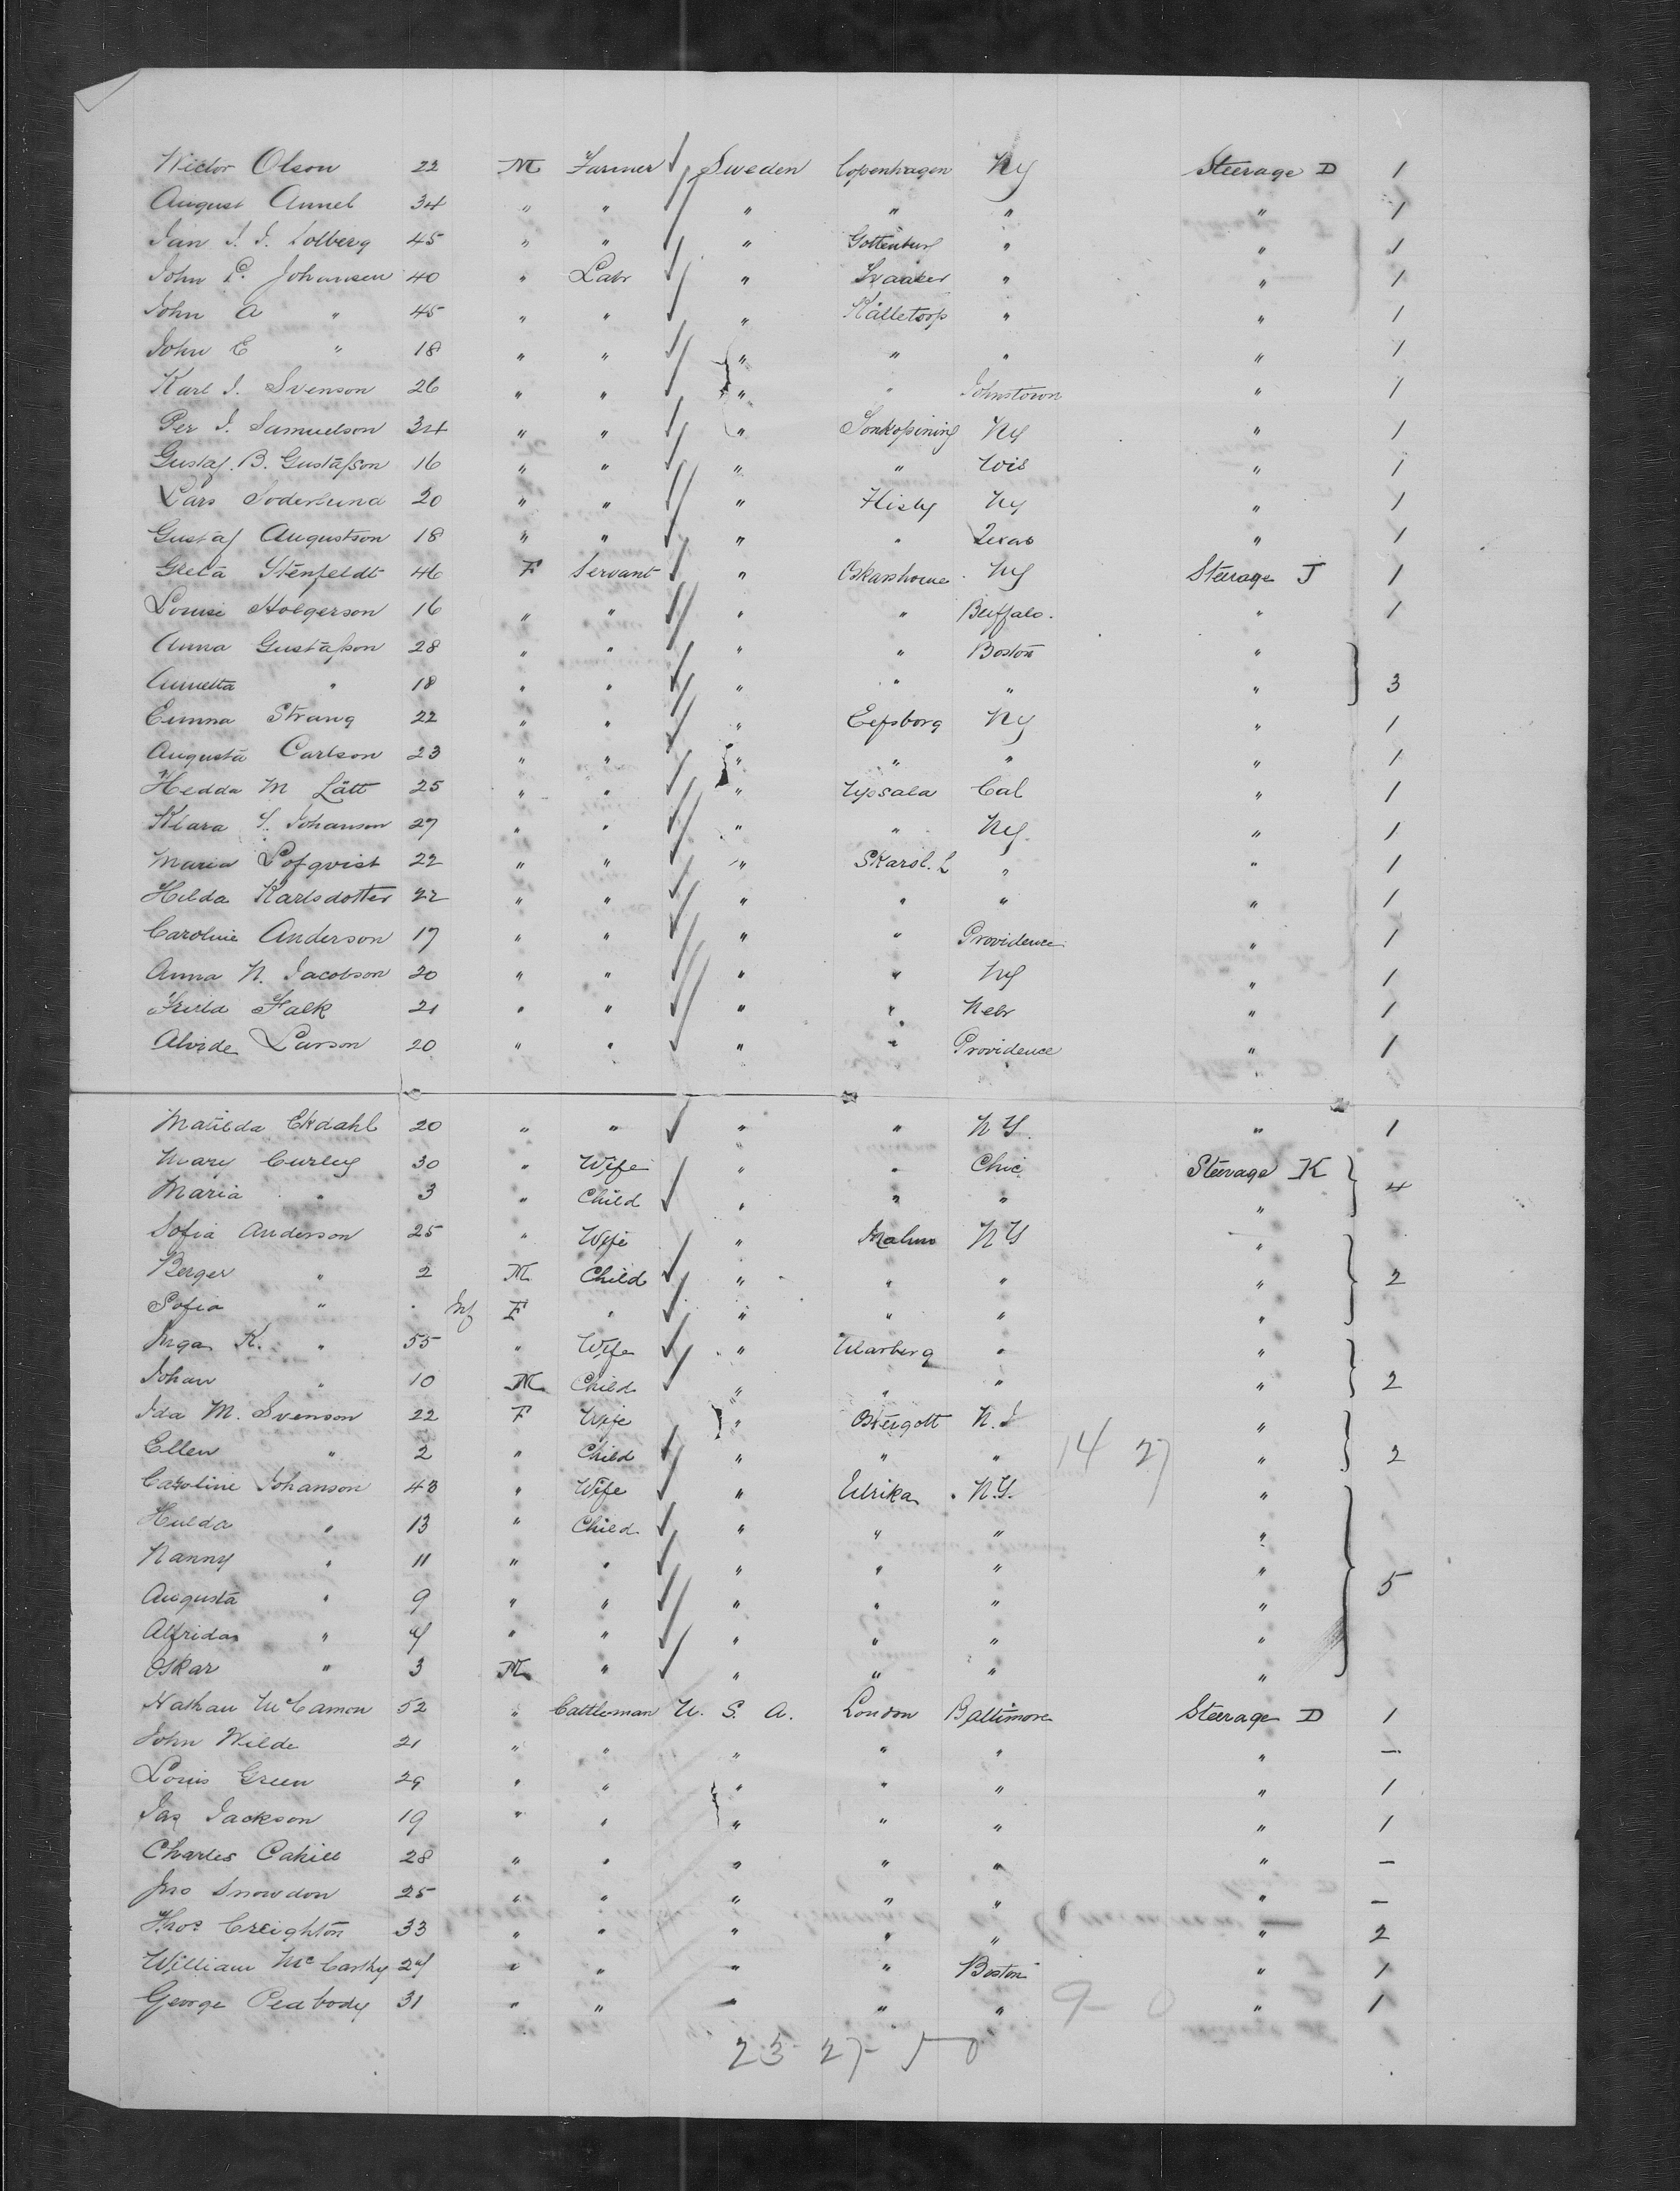 Victor Olson 22 M Farmer Sweden Copenhagen NY Steerage D 1
August Annel 34 " " " " " " 1
Jan J. J. Tolberg 45 " " " Gottenburg " " 1
John P. Johansen 40 " Labr " " " 1
John A " 45 " " " Källetorp " " 1
John E " 18 " " " " " " 1
Karl J. Svenson 26 " " " " Johnstown " 1
Per J. Samuelson 34 " " " Jonkopining NY " 1
Gustaf. B. Gustafson 16 " " " " Wis " 1
Lars Soderlund 20 " " " Hisly NY " 1
Gustaf Augustson 18 " " " " Texas " 1
Greta Stenfeldt 46 F Servant " NY Steerage J 1
Louise Holgerson 16 " " " " Buffalo. " 1
Anna Gustafson 28 " " " " Boston "
Annetta " 18 " " " " " " 3
Emma Strang 22 " " " Elfsborg NY " 1
Augusta Carlson 23 " " " " " " 1
Hedda M Lätt 25 " " " Upsala Cal " 1
Klara S. Johanson 27 " " " " NY. " 1
Maria Lofqvist 22 " " " Skarsb. L " " 1
Hilda Karlsdotter 22 " " " " " " 1
Caroline Anderson 17 " " " " Providence " 1
Anna N. Jacobson 20 " " " " NY " 1
Falk 21 " " " " Nebr " 1
Alvide Larson 20 " " " " Providence " 1
Matilda Ekdahl 20 " " " " NY. " 1
Mary Curley 30 " Wife " " Chic Steerage K
Maria " 3 " Child " " " " 4
Sofia Anderson 25 " Wife " Malmo NY "
Berger " 2 M Child " " " " 2
Sofia " Inf F " " " " "
Inga K. " 55 " Wife " Warberg " "
Johan " 10 M Child " " " " 2
Ida M. Svenson 22 F Wife " Ostergott N. J "
Ellen " 2 " Child " " " 14 27 " 2
Caroline Johanson 43 " Wife " Ulrika N.Y. "
Hulda " 13 " Child " " " "
Nanny " 11 " " " " " "
Augusta " 9 " " " " " " 5
Alfrida " 7 " " " " " "
Oskar " 3 M " " " " "
Nathan McCamon 52 " Cattleman U. S. A. London Baltimore Steerage D 1
John Wilde 21 " " " " " " —
Louis Green 29 " " " " " " 1
Jas Jackson 19 " " " " " " 1
Charles Cahill 28 " " " " " " —
Jno Snowdon 25 " " " " " " —
Thos Creighton 33 " " " " " " 2
William McCarthy 27 " " " " Boston " 1
George Peabody 31 " " " " " 9 0 " 1
23 27 50